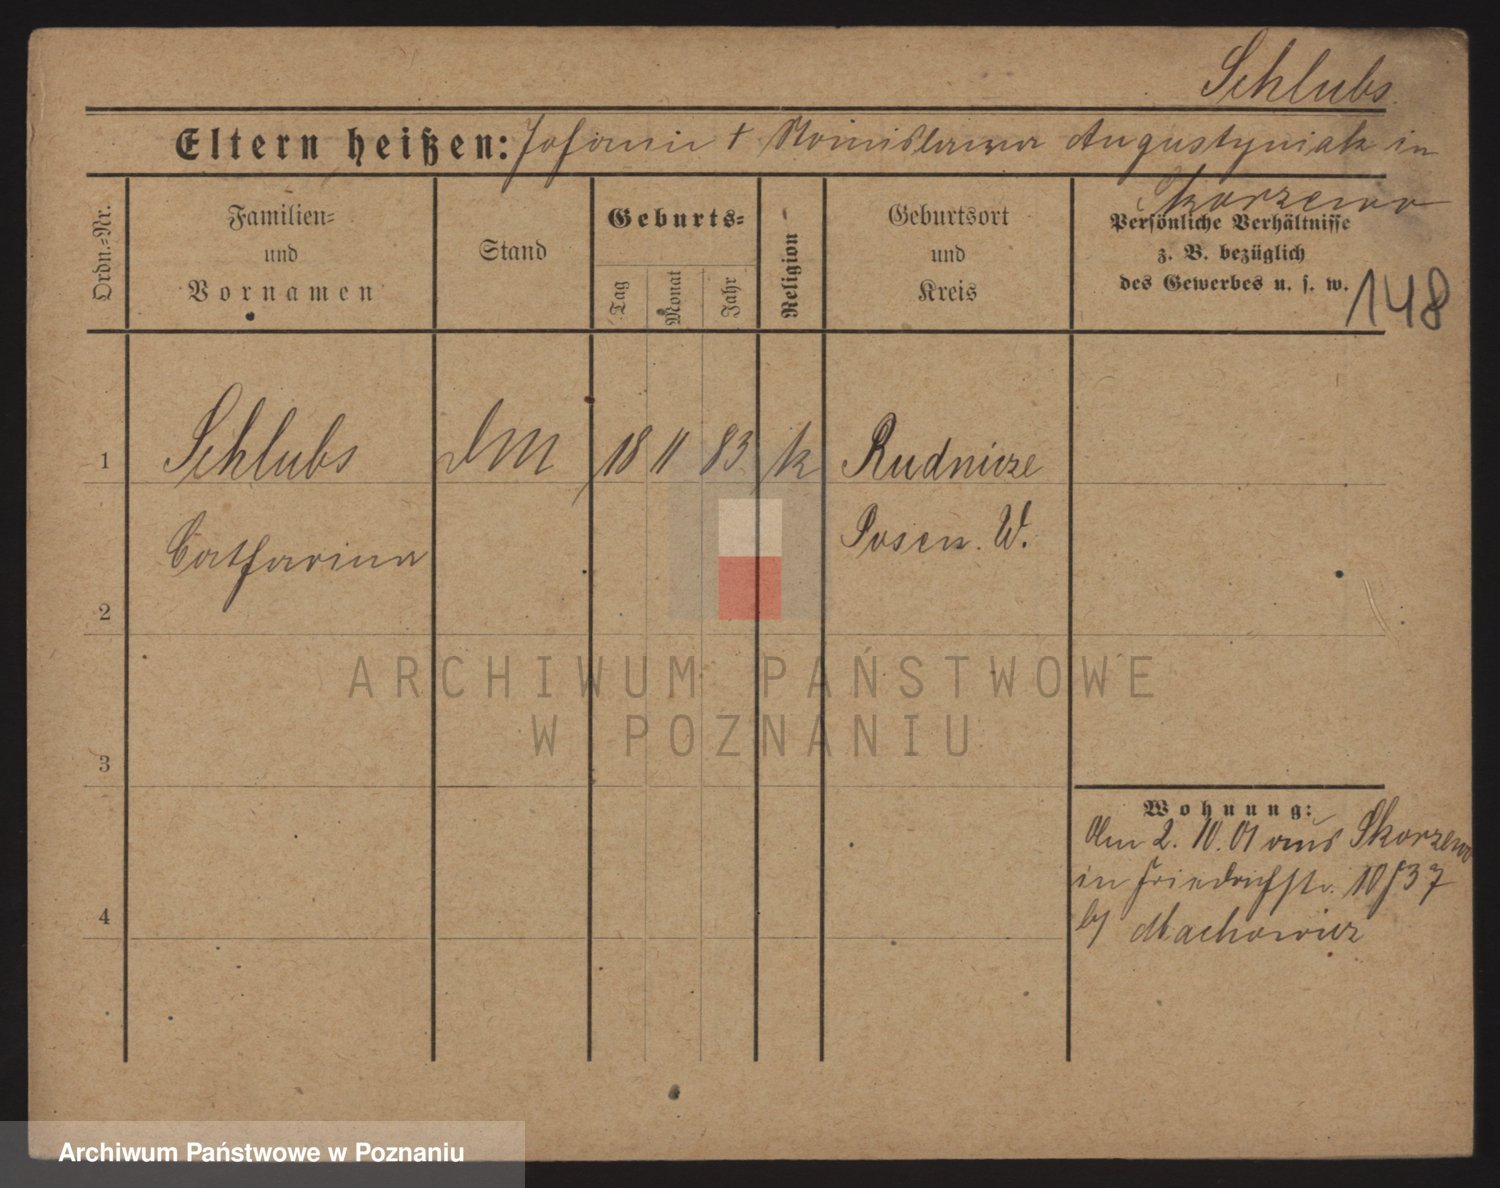 Schlubs.
Eltern heißen: Johann † Stanislawa Augustyniak in
Skorzewo
Ordn.-Nr.
Familien-
und
Vornamen
Stand
Geburts-
Tag
Monat
Jahr
Religion
Geburtsort
und
Kreis
Persönliche Verhältnisse
z. B. bezüglich
des Gewerbes u. s. w.
148
1 Schlubs DM 18 11 83 k Rudnicze
Catharina Posen. W.
2
ARCHIWUM PAŃSTWOWE
W POZNANIU
3
Wohnung:
Am 2. 10. 01 aus Skorzewo
in Friedrichstr. 10/37
4
by Machowicz
Archiwum Państwowe w Poznaniu